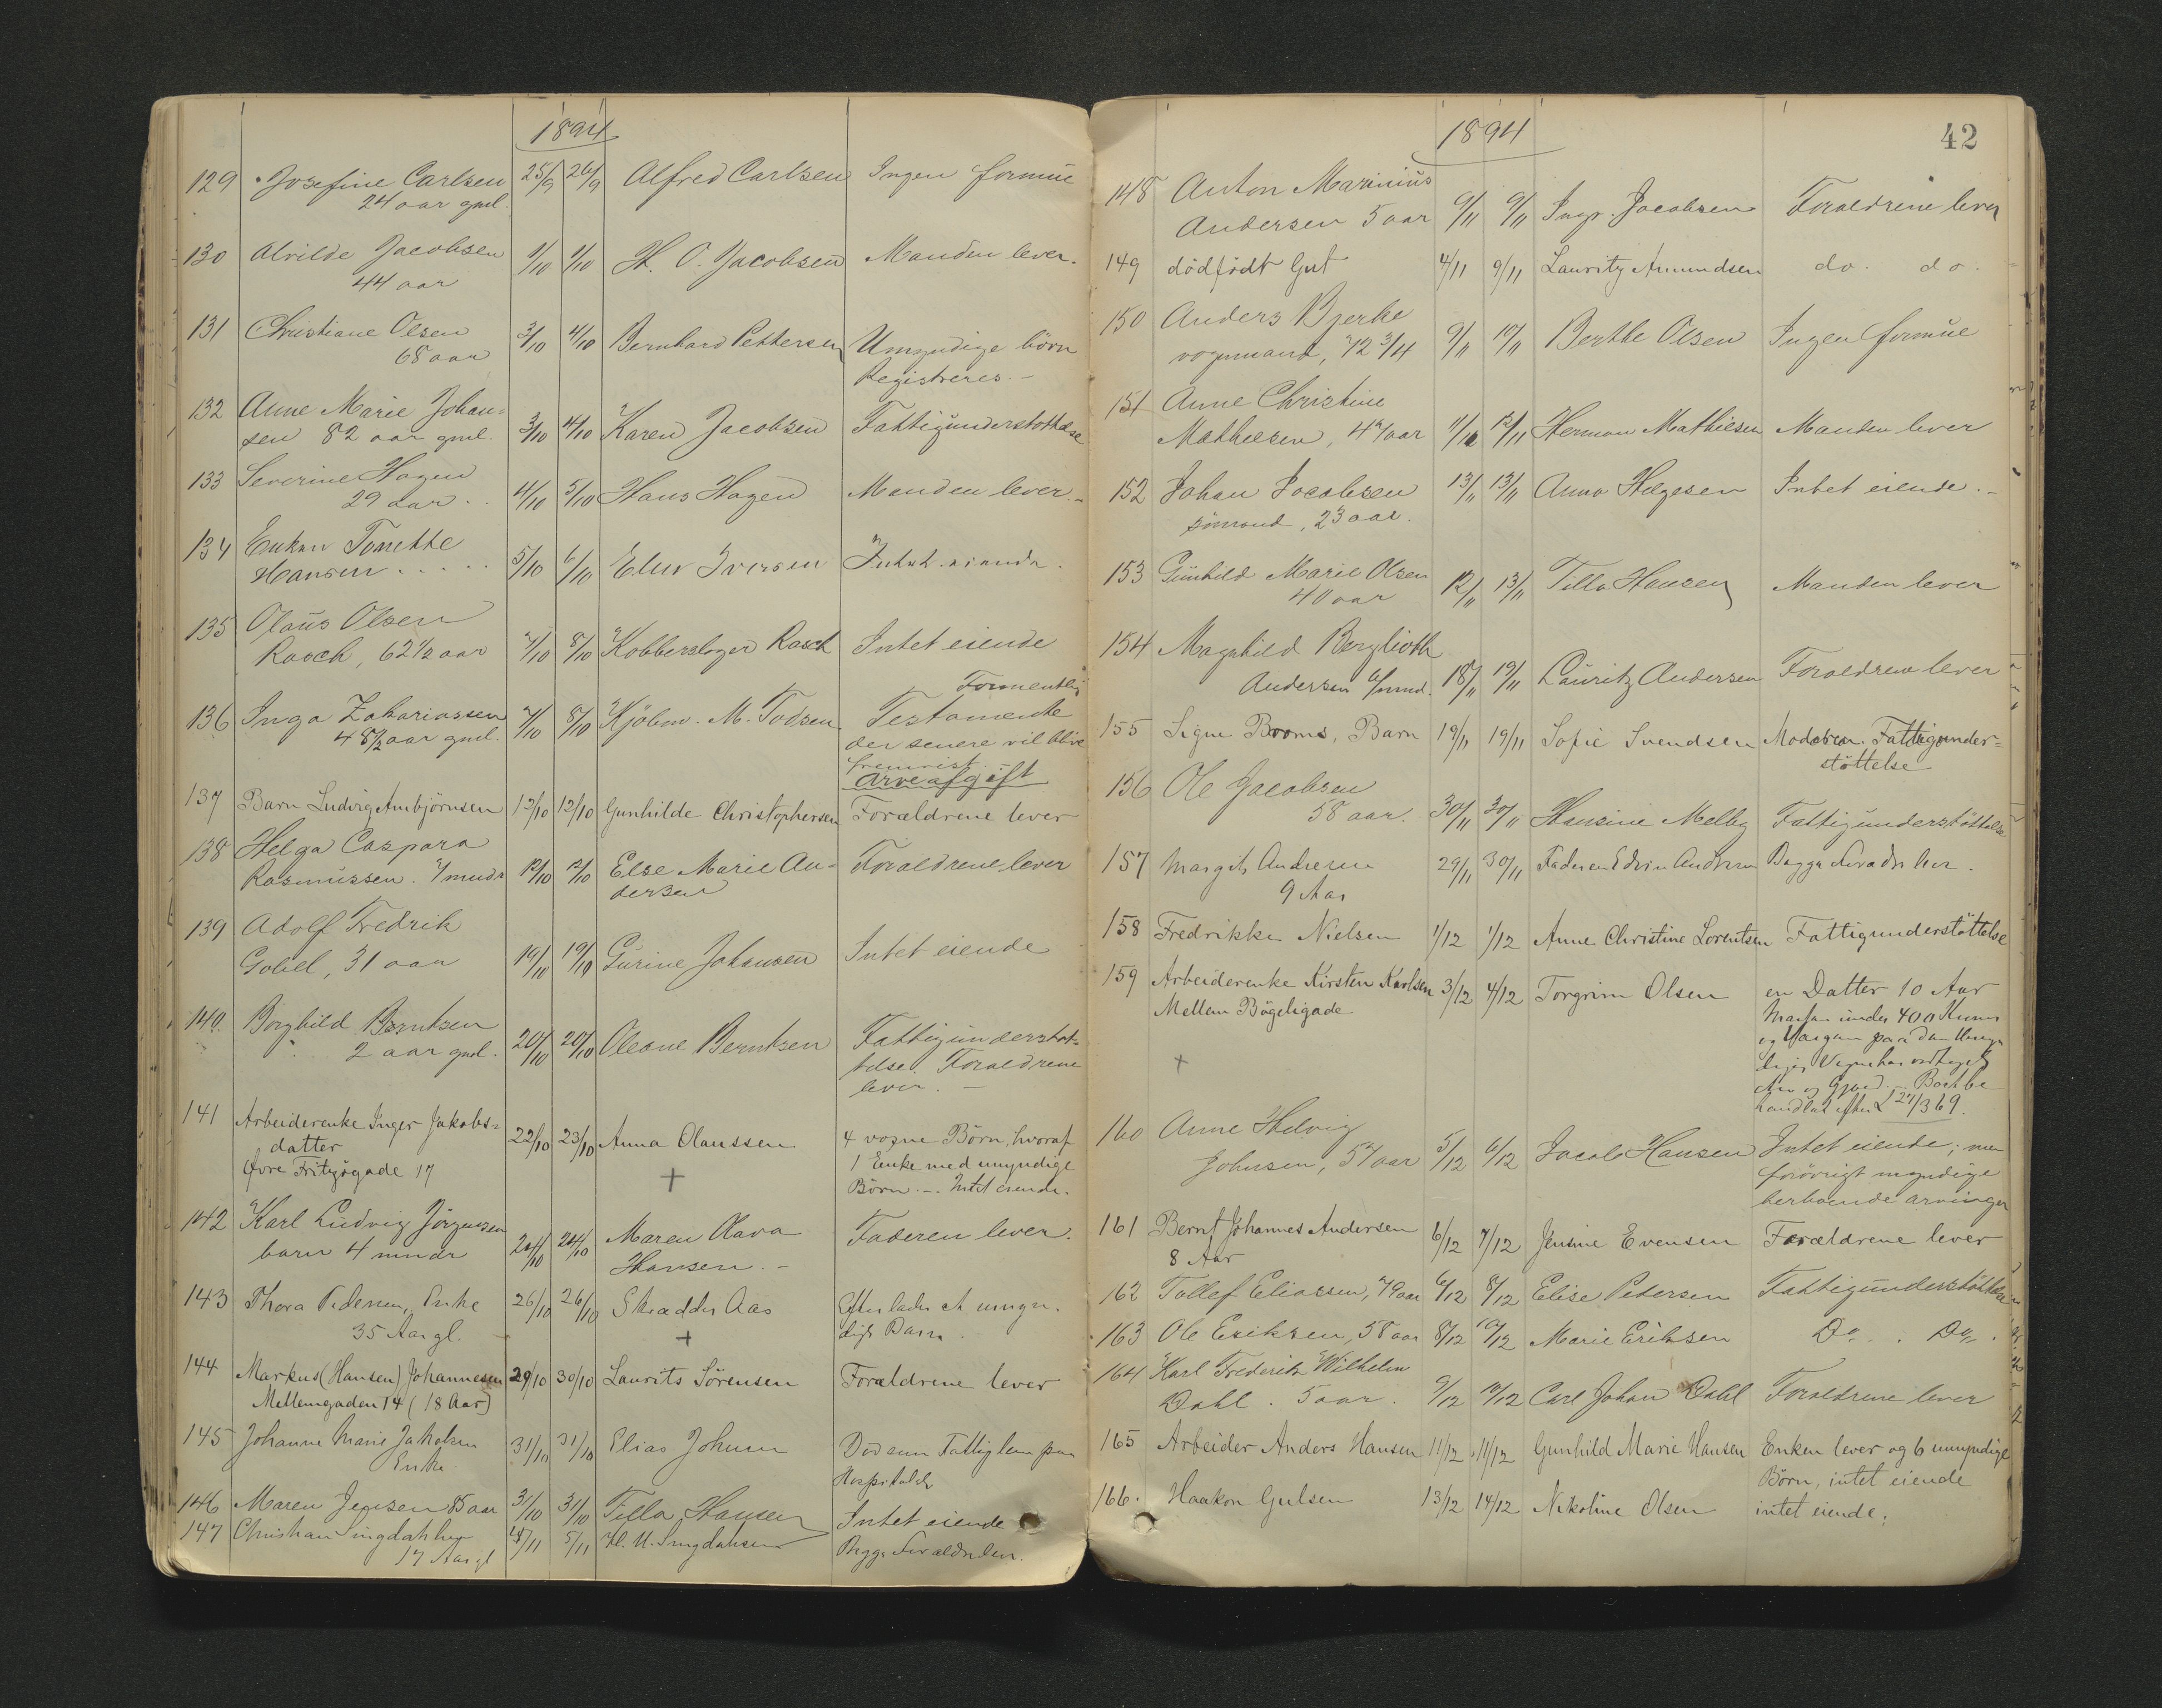 1894
129 Josefine Carlsen 25/9 26/9 Alfred Carlsen Ingen formue
24 aar gml.
130 Alvilde Jacobsen 1/10 1/10 H. O. Jacobsen Manden lever.
44 aar
131 Christiane Olsen 3/10 4/10 Bernhard Pettersen Umyndige börn
68 aar Registreres.-
132 Anne Marie Johan-
sen 82 aar gml. 3/10 4/10 Karen Jacobsen Fattigunderstøttelse
133 Severine Hagen
29 aar. 4/10 5/10 Hans Hagen Manden lever.-
134 Enken Tonette
Hansen..... 5/10 6/10 Iversen Intet eiende.
135 Olaus Olsen
Rasch, 62 1/2 aar 7/10 8/10 Kobberslager Rasch Intet eiende
Formentlig
136 Inga Zakariassen 7/10 8/10 Kjöbm. M. Testamente
48 1/2 aar gml. der senere vil blive
fremvist.
Arveafgift
137 Barn Ludvig Ambjörnsen 12/10 12/10 Gunhilde Christophersen Forældrene lever
138 Helga Caspara
Rasmussen. mndr 12/10 12/10 Else Marie An- Forældrene lever
dersen
139 Adolf Fredrik
Gobel, 31 aar 19/10 19/10 Gurine Johansen Intet eiende
140. Borghild Berntsen
2 aar gml. 20/10 20/10 Oleane Berntsen Fattigunderstøt-
telse. Forældrene
lever.-
141 Arbeiderenke Inger Jakobs=
datter 22/10 23/10 Anna Olaussen 4 voxne Börn, hvoraf
Øvre Fritzögade 17 + 1 Enke med umyndige
Börn.-. Intet eiende.
142 Karl Ludvig Jörgensen
barn 4 mndr 24/10 24/10 Maren Olava Faderen lever.
Hansen.-
143 Thora Pedersen, Enke 26/10 26/10 Skrædder Aas Efterlader et umyn-
35 Aar gl. + digt Barn.
144 Markus (Hansen) Johannesen 29/10 30/10 Laurits Sörensen Forældrene lever
Mellemgaden 14 (18 Aar)
145 Johanne Marie Jakobsen 31/10 31/10 Elias Johnsen Död som Fattiglem paa
Enke Hospitalet
146 Maren Jensen 85 aar 31/10 31/10 Tilla Hansen Intet eiende
147 Christian Lingdahlsen 4/11 5/11 H. M. Lingdahlsen Begge Forældre lever.
17 Aar gl
1894 42
148 Anton Marinius
Andersen 5 aar 9/11 9/11 Ingr. Jacobsen Forældrene lever
149 dödfödt Gut 4/11 9/11 Lauritz Amundsen do. do.
150 Anders Bjerke
vognmand, 72 3/4 9/11 10/11 Berthe Olsen Ingen formue
151 Anne Christine
Mathiesen, aar 11/11 12/11 Herman Mathiesen Manden lever
152 Johan Jacobsen 13/11 13/11 Anna Helgesen Intet eiende.-
sömand, 23 aar.
153 Gunhild Marie Olsen 12/11 13/11 Tilla Hansen Manden lever
40 aar
154 Magnhild Berglioth
Andersen mnd. 18/11 19/11 Lauritz Andersen Forældrene lever
155 Signe Brooms, Barn 19/11 19/11 Sofie Svendsen Moderen Fattigunder=
støttelse
156 Ole Jacobsen
58 aar. 30/11 30/11 Hansine Melby Fattigunderstøttelse
157 Margit Andresen 29/11 30/11 Faderen Edvin Andresen Begge Forældre lever.
9 Aar
158 Fredrikke Nielsen 1/12 1/12 Anne Christine Lorentsen Fattigunderstöttelse
159 Arbeiderenke Kirsten Karlsen 3/12 4/12 Torgrim Olsen en Datter 10 Aar
Mellem Bögeligade Massen under 400 Kroner
og Værgen paa den Umyn
+ diges Vegne har vedtaget
Arv og Gjæld.- Boet be
handlet efter L 27/3 69.
160 Anne Helvig
Johnsen, 57 aar 5/12 6/12 Jacob Hansen Intet eiende; men
forövrigt myndige
herboende arvinger
161 Bernt Johannes Andersen 6/12 7/12 Jensine Evensen Forældrene lever
8 Aar
162 Tollef Eliassen, 79 aar 6/12 8/12 Elise Pedersen Fattigunderstøttelse
163 Ole Eriksen, 58 aar 8/12 10/12 Marie Eriksen Do. Do.
164 Karl Frederik Wilhelm
Dahl. 5 aar. 9/12 10/12 Carl Johan Dahl Forældrene lever
165 Arbeider Anders Hansen 11/12 11/12 Gunhild Marie Hansen Enken lever og 6 umyndige
Börn, intet eiende
166. Haakon Gulsen 13/12 14/12 Nikoline Olsen intet eiende.